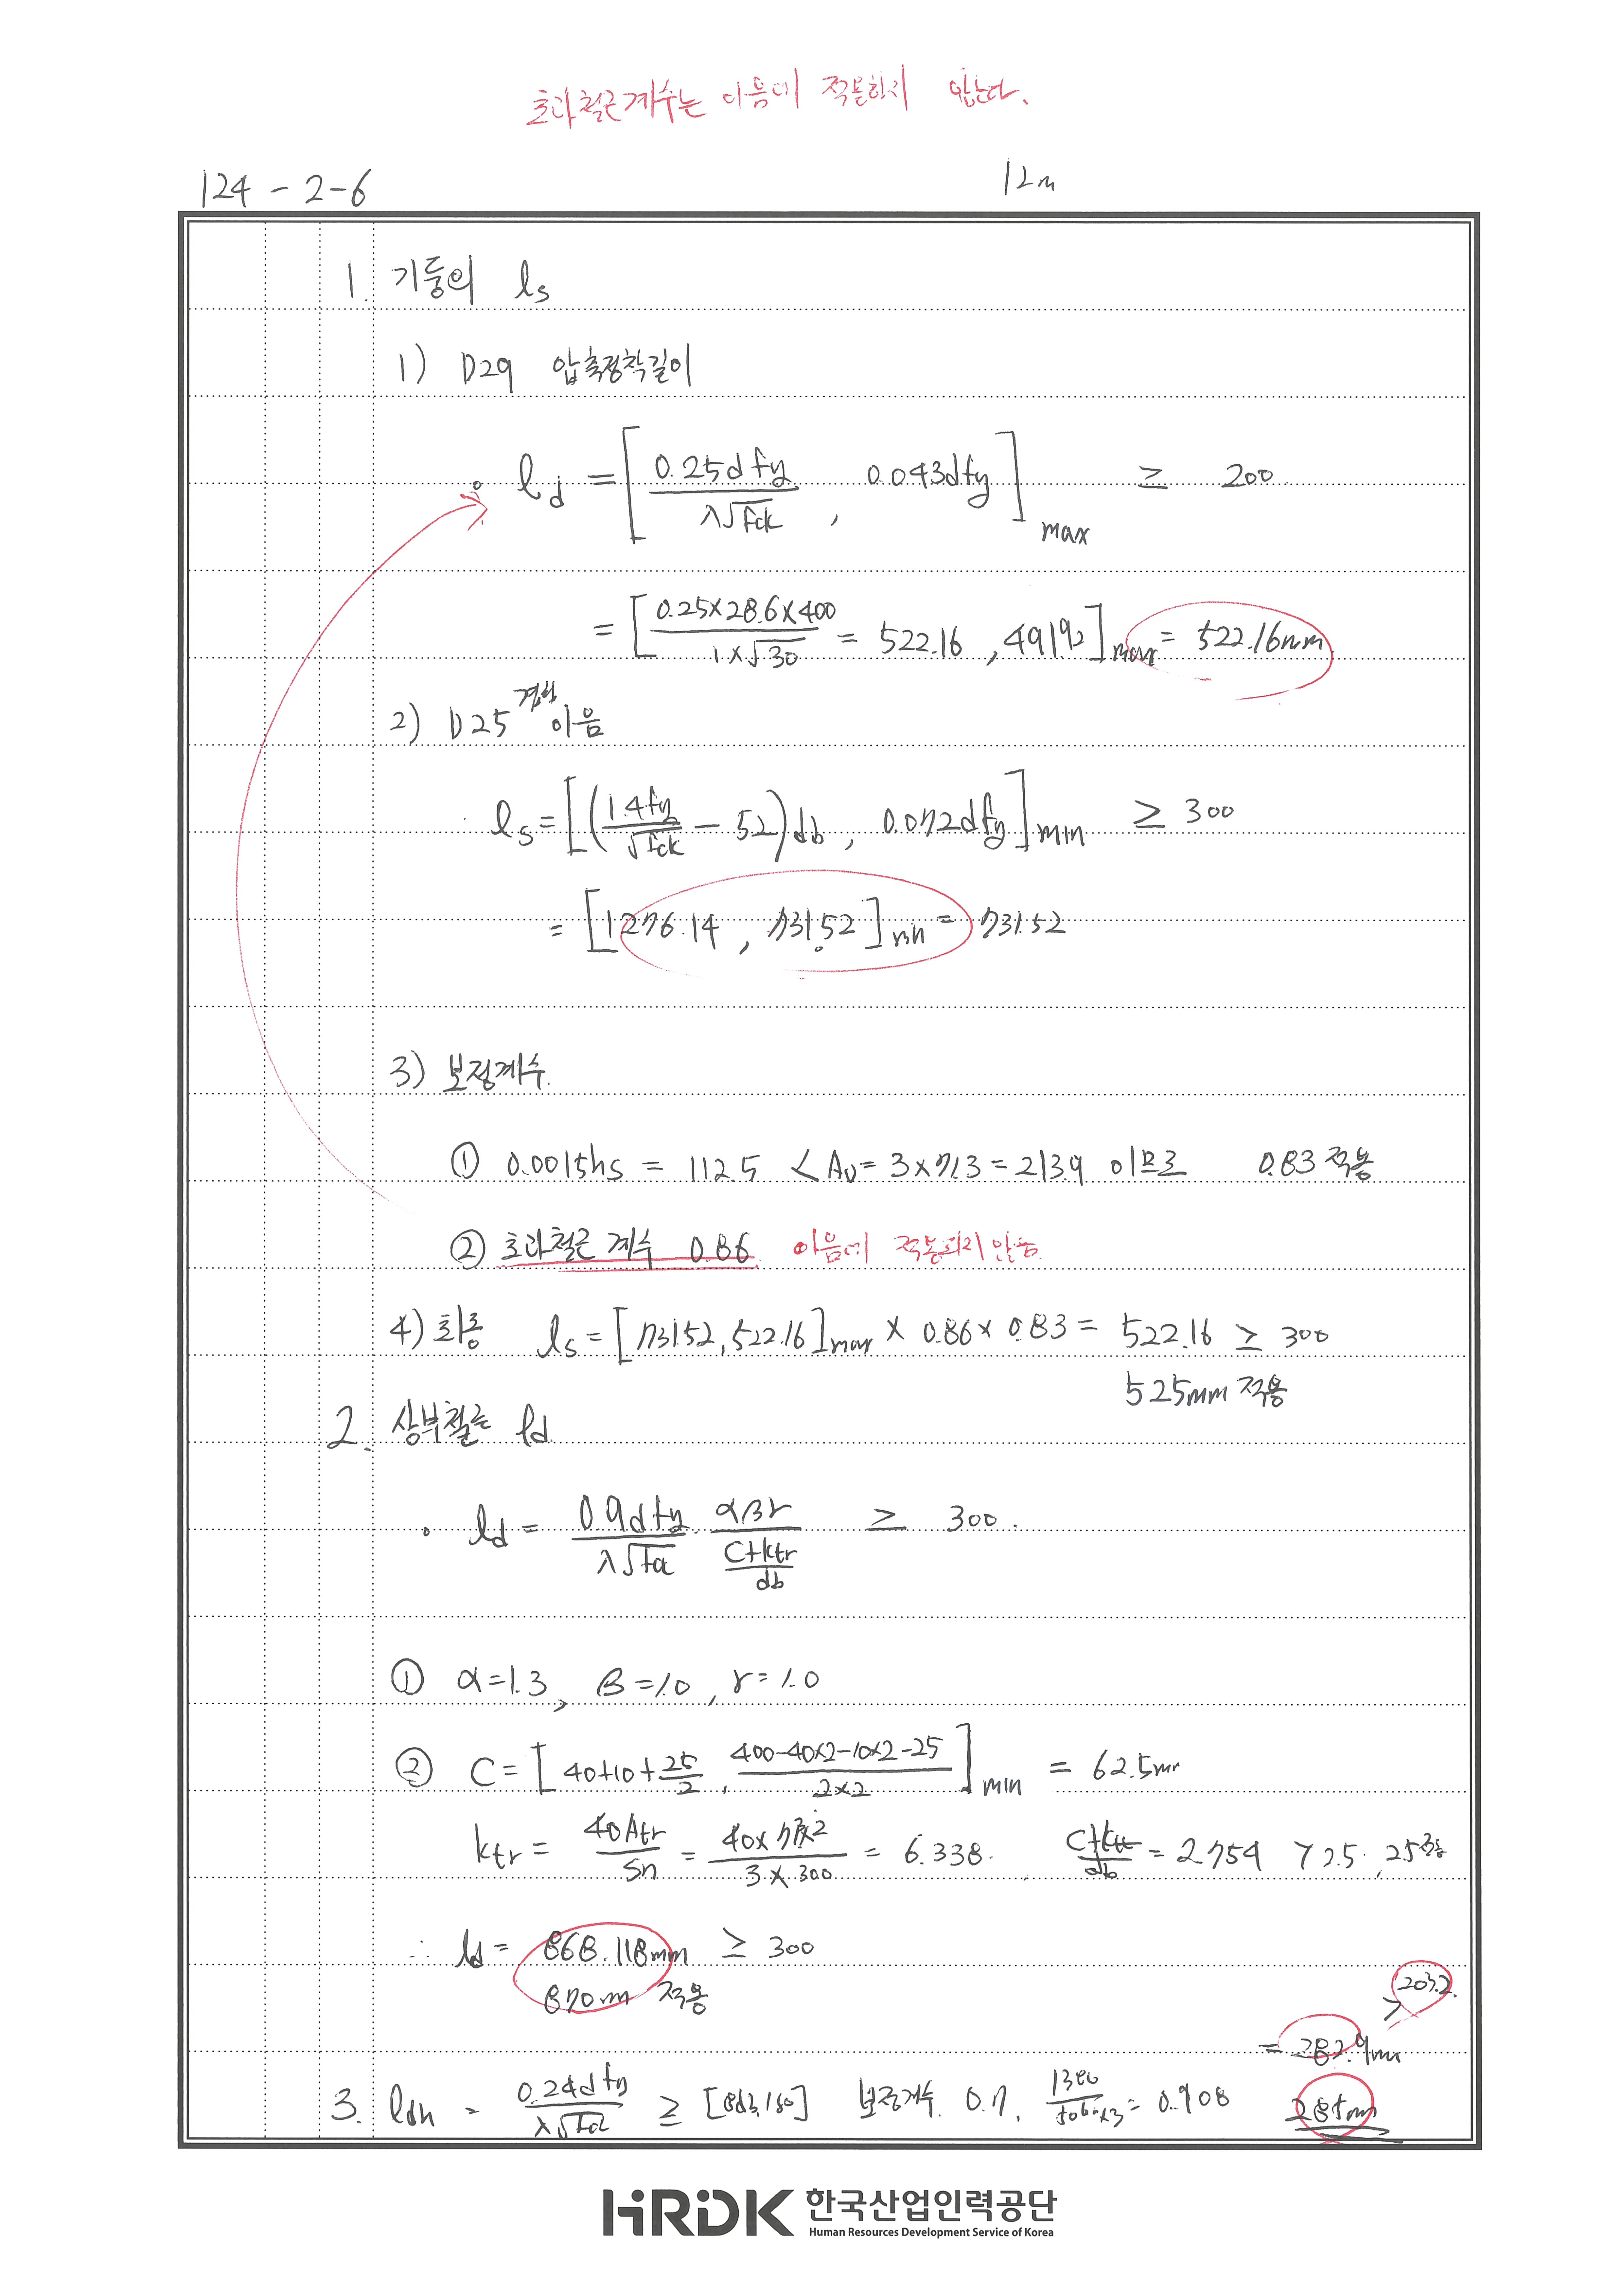 초과철근계수는 이음에 적용하지 않는다.
124 - 2-6
12m
1. 기둥의 ls
1) D29 압축정착길이
ld = [ 0.25dfy / λ√fck , 0.043dfy ] max ≥ 200
= [ 0.25×28.6×400 / 1×√30 = 522.16 , 491.92 ] max = 522.16mm
2) D25 겹침 이음
ls = [ ( 1.4fy / √fck - 52 ) db , 0.072dfy ] min ≥ 300
= [ 1276.14 , 731.52 ] min = 731.52
3) 보정계수
① 0.0015hs = 112.5 < Av = 3×71.3 = 213.9 이므로 0.83 적용
② 초과철근 계수 0.86 이음에 적용되지 않음
4) 최종 ls = [ 731.52, 522.16 ] max × 0.86 × 0.83 = 522.16 ≥ 300
525mm 적용
2. 상부철근 ld
· ld = 0.9dfy / λ√fck · αβγ / (C+ktr / db) ≥ 300.
① α=1.3, β=1.0, γ=1.0
② C = [ 40+10+25/2 , 400-40×2-10×2-25 / 2×2 ] min = 62.5mm
ktr = 40Atr / sn = 40×71.3×2 / 3×300 = 6.338. C+ktr / db = 2.754 > 2.5, 2.5 적용
∴ ld = 868.118mm ≥ 300
870mm 적용
> 203.2.
= 282.9mm
3. ldh = 0.24dfy / λ√fck ≥ [8db, 150] 보정계수 0.7, = 0.908 285mm
HRDK 한국산업인력공단
Human Resources Development Service of Korea